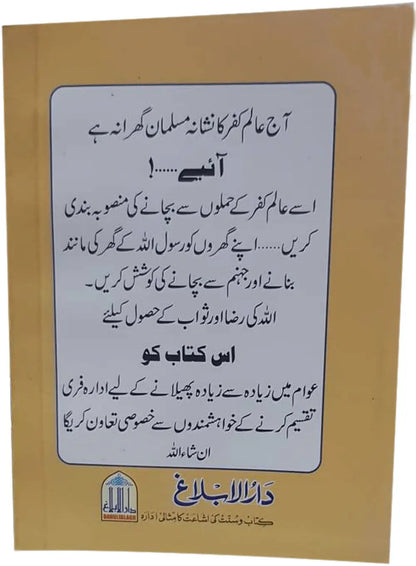 آج عالم کفر کا نشانہ مسلمان گھرانہ ہے
آئیے......!
اسے عالم کفر کے حملوں سے بچانے کی منصوبہ بندی
کریں......اپنے گھروں کو رسول اللہ کے گھر کی مانند
بنانے اور جہنم سے بچانے کی کوشش کریں۔
اللہ کی رضا اور ثواب کے حصول کیلئے
اس کتاب کو
عوام میں زیادہ سے زیادہ پھیلانے کے لیے ادارہ فری
تقسیم کرنے کے خواہشمندوں سے خصوصی تعاون کریگا
ان شاء اللہ
دارالابلاغ
کتاب و سنت کی اشاعت کا مثالی ادارہ
دارالابلاغ
DARULIBLAGH